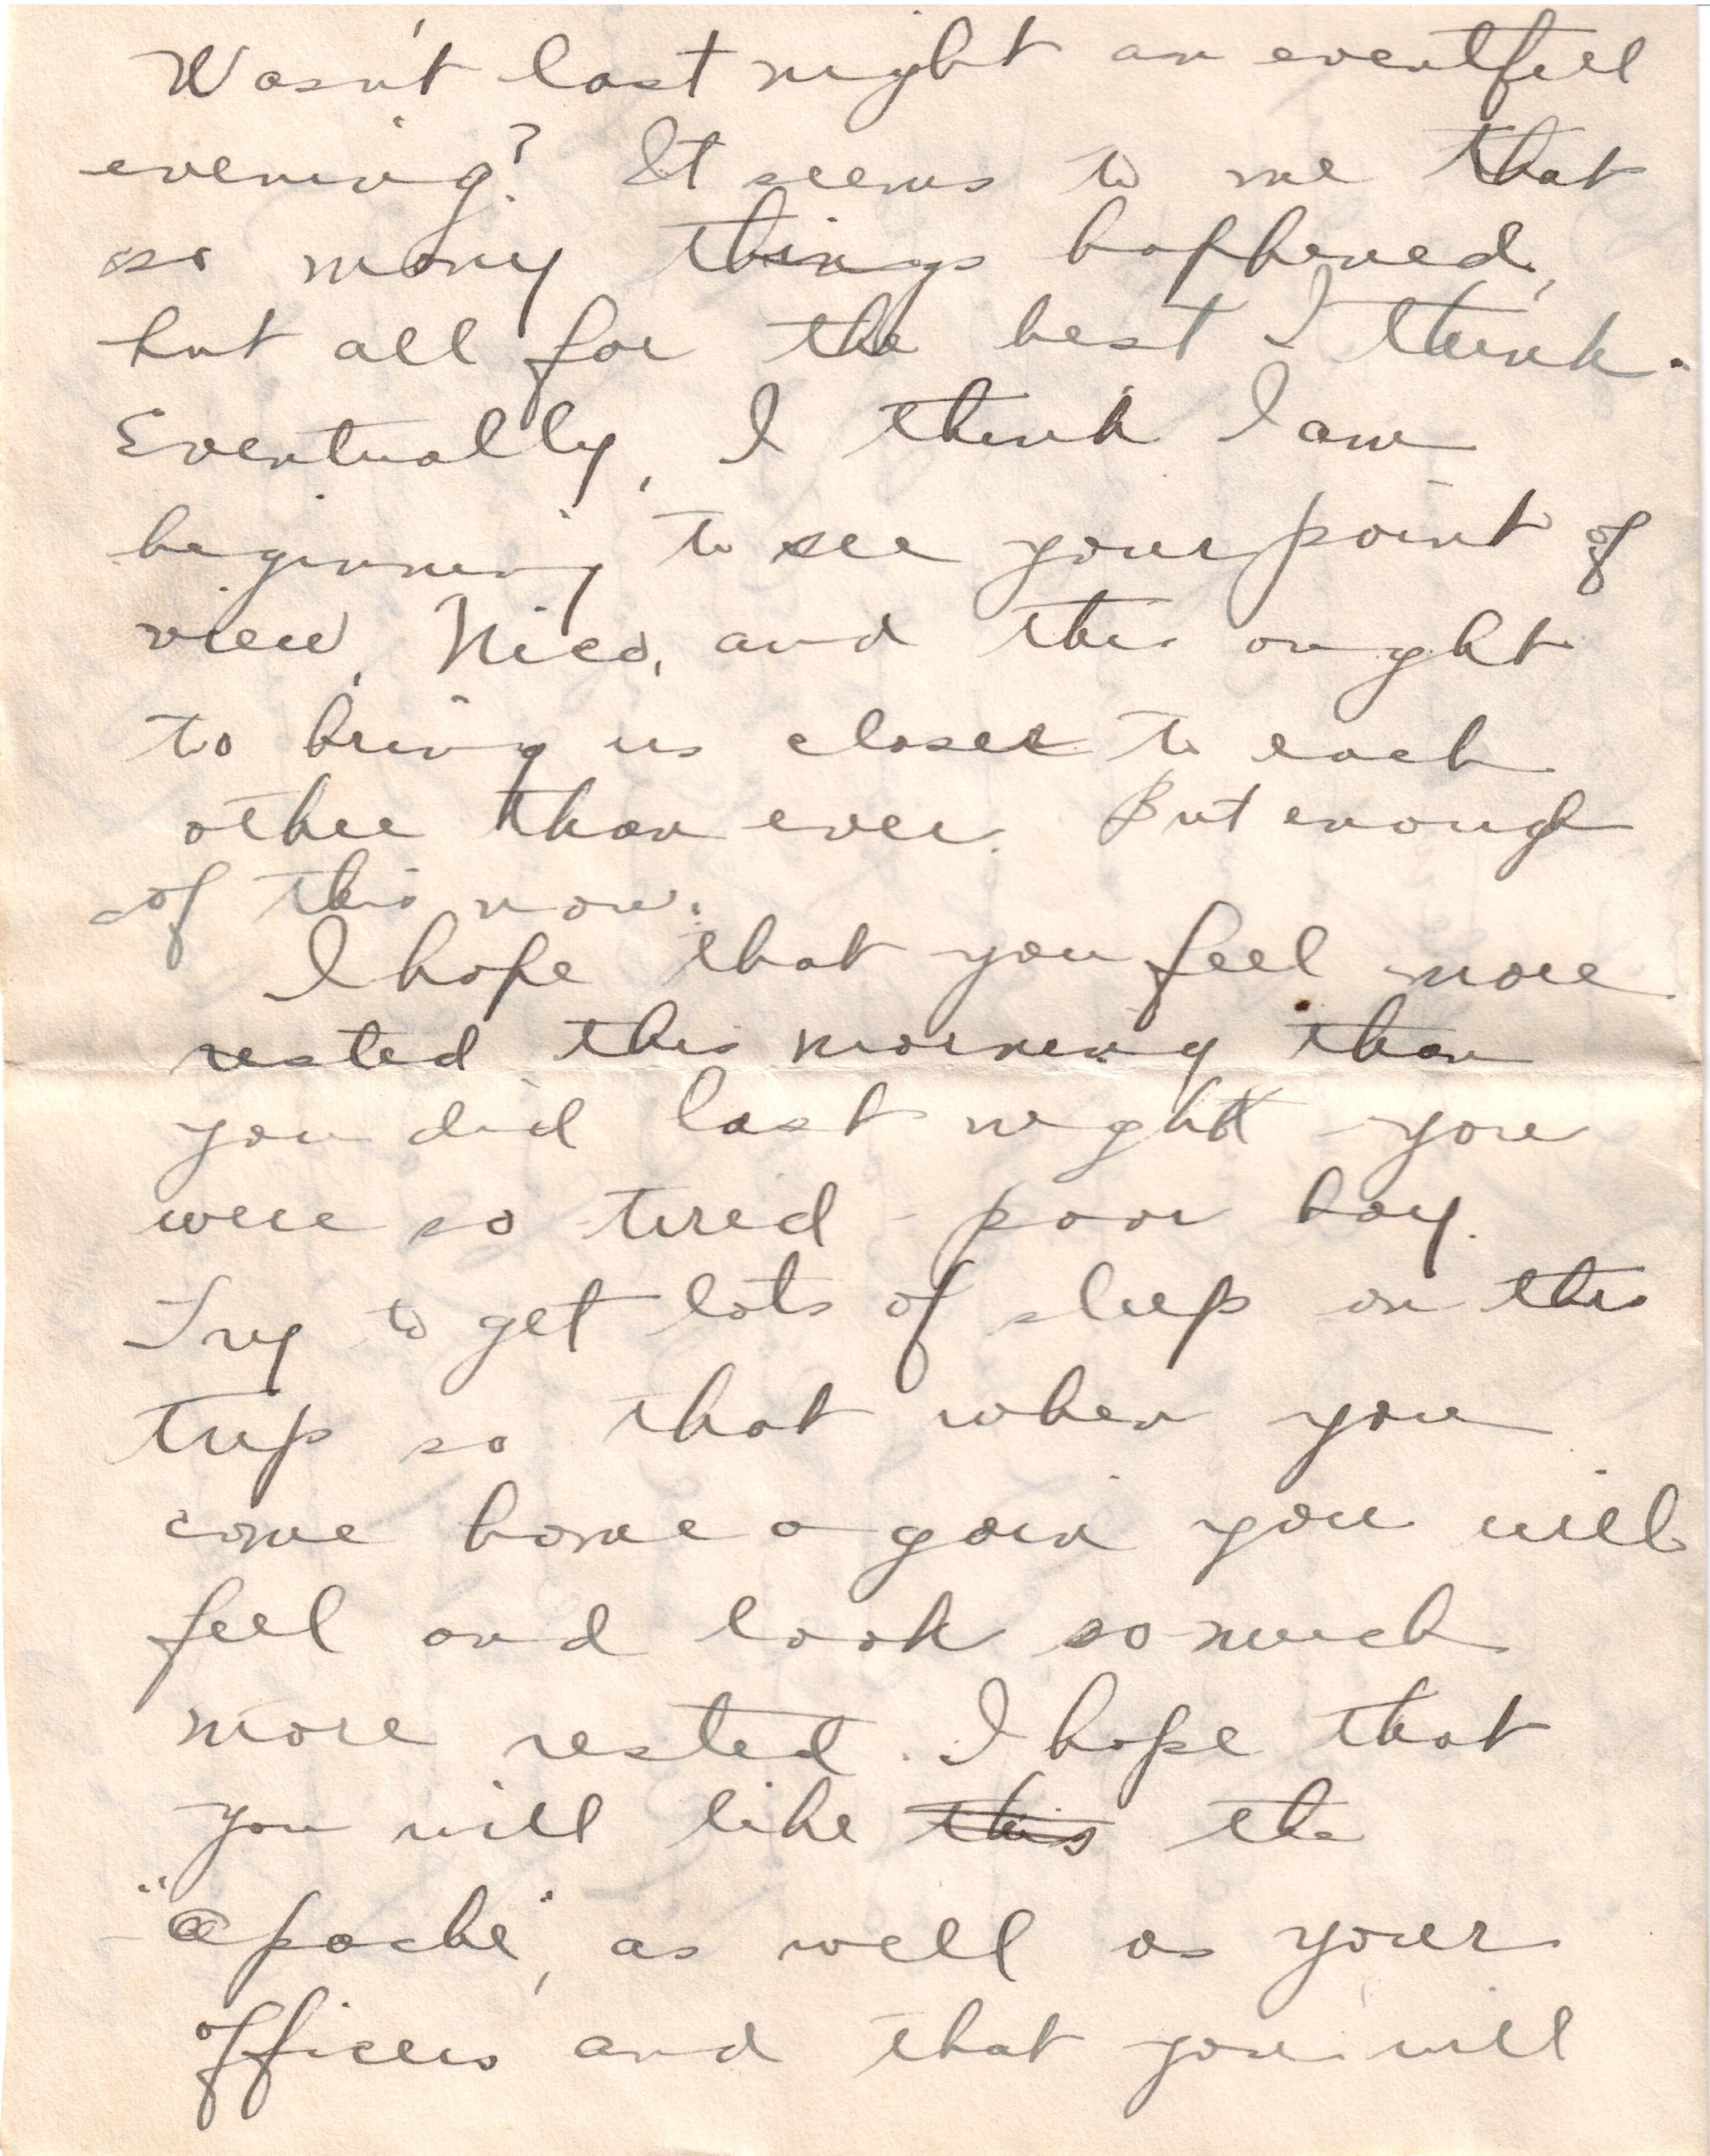 Wasn't last night an eventfull
evening? It seems to me that
so many things happened,
but all for the best I think.
Eventually, I think I am
beginning to see your point of
view, Nico, and this ought
to bring us closer to each
other than ever. But enough
of this now.
I hope that you feel more
rested this morning than
you did last night - you
were so tired - poor boy.
Try to get lots of sleep on this
trip so that when you
come home again you will
feel and look so much
more rested. I hope that
you will like this the
"Apache", as well as your
officers and that you will